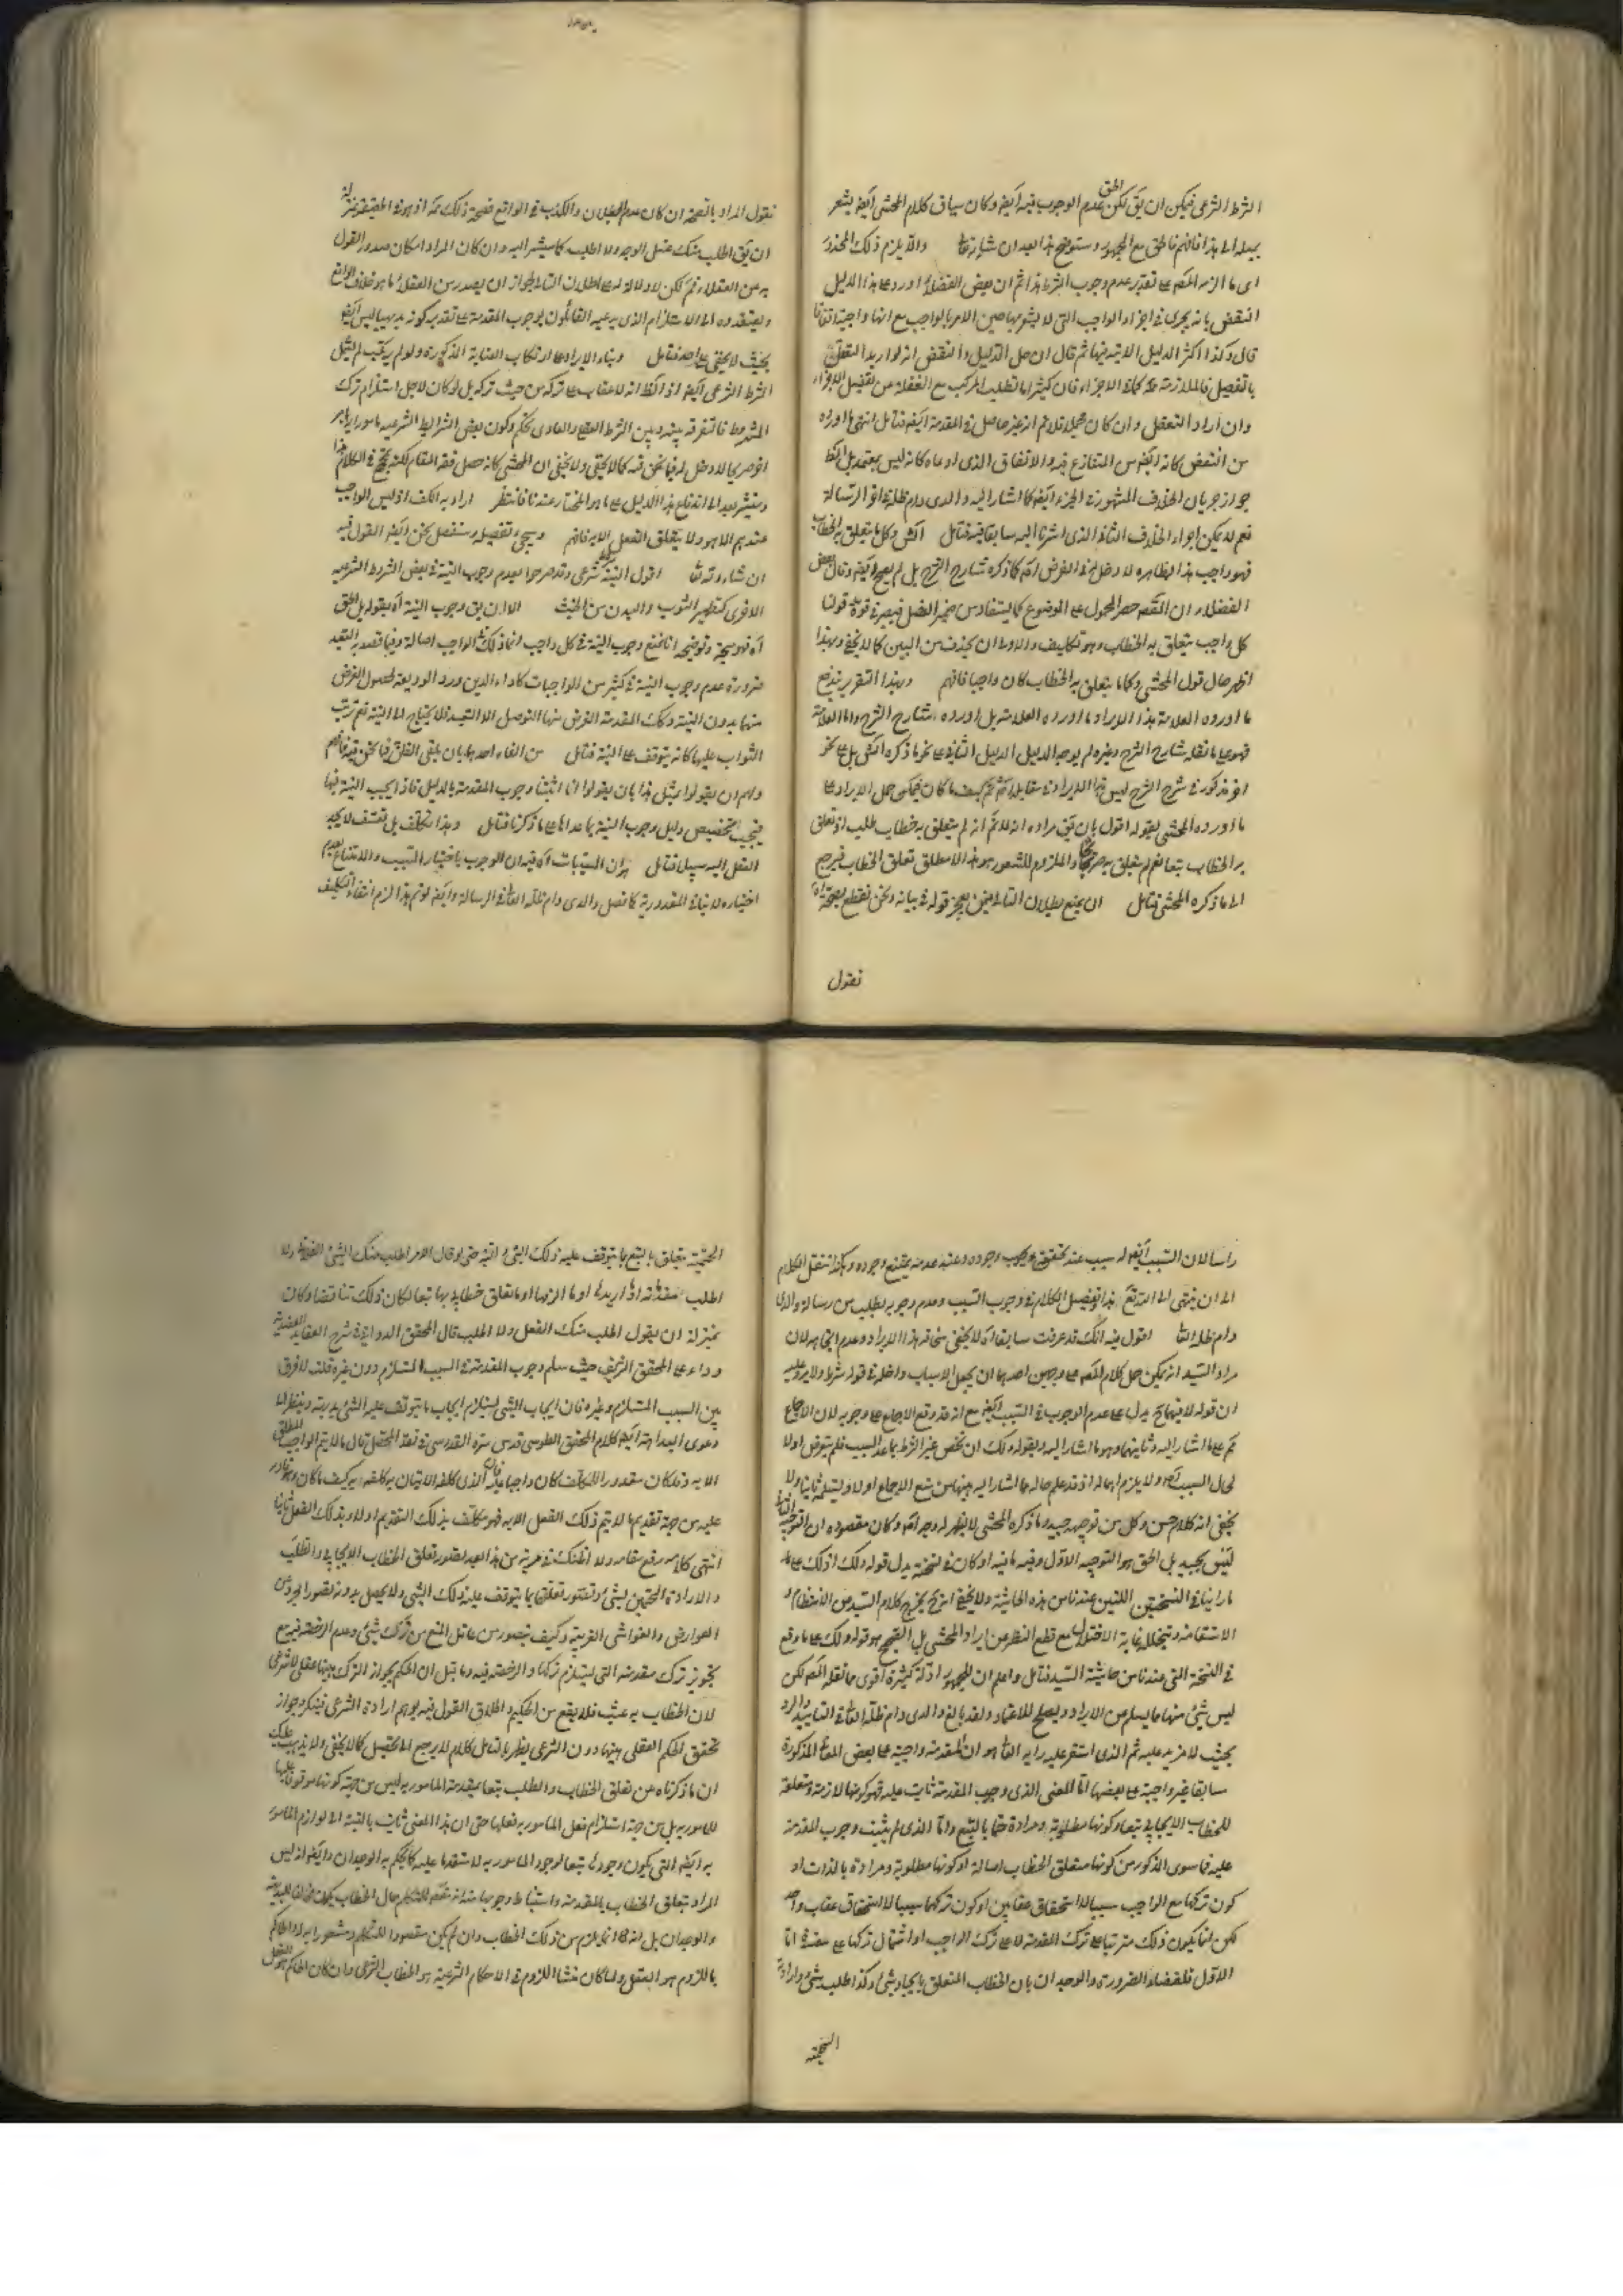 الشرط الشرعى فيكن ان يق لكن الحق عدم الوجوب فيه ايضا وكان سياق كلام المحشى ايضا يشعر
بميله الى هذا فافهم مع الجمهور وستوضح هذا بعد ان شاء الله والا يلزم ذلك المحذور
اى ما الزمه الخصم على تقدير عدم وجوب الشرط هذا ثم ان بعض الفضلاء اورد على هذا الدليل
النقض بانه يجرى فى اجزاء الواجب التى لا يشعر بها حين الامر بالواجب مع انها واجبة اتفاقا
قال وكذا اكثر الدليل الاتية فيها ثم قال ان حل الدليل والنقض انه لو اريد التعقل
بالتفصيل فالملازمة كافة الاجزاء فان كثيرا ما تطلب المركب مع الغفلة عن تفصيل الاجزاء
وان اراد التعقل وان كان مجملا فلا ثم انه غير حاصل فى المقدمة ايضا فتامل انتهى ما اورده
من النقض كانه ايضا من المتنازع فيه والاتفاق الذى ادعاه كانه ليس بمعتمد بل الظ
جواز جريان الخلاف المشهور فى الجزء ايضا كما اشار اليه والدى دام ظله فى الرسالة
نعم لا يمكن اجراء الخلاف الثانى الذى اشرنا اليه سابقا فيه فتامل وكل ما يتعلق به الخطاب
فهو واجب هذا الظاهر لا دخل له فى الغرض كما ذكره شارح الشرح بل لم يصح ايضا وقال بعض
الفضلاء ان القصد حصر المحمول على الموضوع كما يستفاد من ضمير الفصل فيصير فى قوة قولنا
كل واجب يتعلق به الخطاب وهو تكليف والاولى ان يحذف من البين كما لا يخفى وبهذا
اظهر حال قول المحشى وكلما يتعلق به الخطاب كان واجبا فافهم وبهذا التقرير يندفع
ما اورده العلامة هذا الايراد ما اورده العلامة بل اورده شارح الشرح واما العلامة
فهو على ما نقله شارح الشرح وغيره لم يوجه الدليل الثانى على نحو ما ذكره بل على نحو
اخر مذكور فى شرح الشرح ليس هذا الايراد فى مقابله ثم كيف ما كان فيمكن حمل الايراد على
ما اورده المحشى بقوله اقول بان يق مراده انه لا ثم انه لم يتعلق به خطاب طلب او تعلق
به الخطاب تبعا نعم لم يتعلق به صريحا والملزوم للشعور هو هذا لا مطلق تعلق الخطاب فيرجع
الى ما ذكره المحشى فتامل ان يمنع بطلان التالى فحينئذ يعجز قوله فى بيانه ونحن نقطع بصحة
نقول
نقول المراد بالصحة ان كان عدم البطلان والكذب فى الواقع فصحة ذلك
ان يق اطلب منك غسل الوجه ولا اطلب كما سيشير اليه وان كان المراد امكان صدور القول
به من العقلاء ثم لكن لا دلالة له على بطلان التالى لجواز ان يصدر من العقلاء ما هو خلاف الواقع
ويعتقدوه الى الاستلزام الذى يدعيه القائلون بوجوب المقدمة على تقدير كونه بديهيا ليس ايضا
بحيث لا يخفى على احد فتامل وبناء الايراد على ارتكاب العناية المذكورة ولو لم يرتكب لم يشمل
الشرط الشرعى ايضا اذ الظ انه لا عقاب على تركه من حيث تركه بل لو كان لاجل استلزام ترك
المشروط فالتفرقة بينه وبين الشرط العقلى والعادى تحكم وكون بعض الشرايط الشرعية مامورا به
اخر صريحا لا دخل له فيما نحن فيه كما لا يخفى ولا يخفى ان المحشى كانه حصل فقر المقام لكنه يحتج فى الكلام هذا
وسنشير بعد الى اندفاع هذا الدليل على ما هو المختار عندنا فانتظر اراد به الكف اذ ليس الواجب
عندهم الا هو ولا يتعلق الفعل الا به فافهم وسيجئ تفصيله وسنفصل نحن ايضا القول فيه
ان شاء الله تعالى اقول النية شرط شرعى وقد صرحوا بعدم وجوب النية فى بعض الشروط الشرعية
الاخرى كتطهير الثوب والبدن من الخبث الا ان يق وجوب النية اه بقوله بل الحق
اه توجيهه وتوضيحه انا نمنع وجوب النية فى كل واجب انما ذلك فى الواجب اصالة وفيما قصد به التعبد
ضرورة عدم وجوب النية فى كثير من الواجبات كاداء الدين ورد الوديعة لحصول الغرض
منها بدون النية وكانت المقدمة الغرض منها التوصل الى التعبد فلا يحتاج الى النية نعم ترتب
الثواب عليها كانه يتوقف على النية فتامل من الغاء احدهما بان يلقى الفارق فيما نحن فيه فافهم
ولهم ان يقولوا مثل هذا بان يقولوا انا اثبتنا وجوب المقدمة بالدليل فاذا لم يجب النية فيها
فيجب تخصيص دليل وجوب النية بما عداها على ما ذكرنا فتامل وهذا تكلف بل تعسف لا يجد
العقل اليه سبيلا فتامل بان المسببات اه فيه ان الوجوب باختيار السبب والامتناع بعدم
اختياره لا ينافى المقدورية كما فصل والدى دام ظله العالى فى الرسالة وايضا لو تم هذا لزم انتفاء التكليف
راسا لان السبب ايضا له سبب عند تحققه يجب وجوده وعند عدمه يمتنع وجوده وهكذا ننقل الكلام
الى ان ينتهى الى الواجب تع هذا وتفصيل الكلام فى وجوب السبب وعدم وجوبه يطلب من رسالة والدى
دام ظله العالى اقول فيه انك قد عرفت سابقا انه لا يخفى شئ هذا الايراد وعدم اتجاهه لان
مراد السيد انه يمكن حمل كلام المصنف على وجهين احدهما ان يجعل الاسباب داخلة فى قوله شرطا ولا يرد عليه
ان قوله لا فيهما يدل على عدم الوجوب فى السبب ايضا مع انه قد وقع الاجماع على وجوبه لان الاجماع
ثم على ما اشار اليه وثانيهما وهو ما اشار اليه بقوله ولك ان تخص غير الشرط بما عدا السبب فلم يتعرض اولا
لحال السبب ولا يلزم اهماله اذ قد علم حاله مما اشار اليه بينهما من منع الاجماع اولا وتسليمه ثانيا ولا
يخفى انه كلام حسن وكل من توجيهه جيد وما ذكره المحشى لا يظهر له وجه وكان مقصوده ان التوجيه الثانى
ليس بجيد بل الحق هو التوجيه الاول وفيه ما فيه او كان فى نسخته بدل قوله ولك اذ لك على ما
راينا فى النسختين اللتين عندنا من هذه الحاشية ولا يخفى انه ح يخرج كلام السيد من الانتظام و
الاستقامة ويختل غاية الاختلال مع قطع النظر عن ايراد المحشى بل الصحيح هو قوله ولك على ما وقع
فى النسخة التى عندنا من حاشية السيد فتامل واعلم ان للجمهور ادلة كثيرة اقوى مما نقله المصنف لكن
ليس شئ منها مما يسلم من الايراد ويصلح للاعتماد ولقد بالغ والدى دام ظله العالى فى التاييد والرد
بحيث لا مزيد عليه ثم الذى استقر عليه رايه العالى هو ان المقدمة واجبة على بعض المعانى المذكورة
سابقا غير واجبة على بعضها اما المعنى الذى وجوب المقدمة ثابت عليه فهو كونها لازمة ومتعلقة
للخطاب الايجابى تبعا وكونها مطلوبة ومرادة حتما بالتبع واما الذى لم يثبت وجوب المقدمة
عليه فما سوى المذكور من كونها متعلق الخطاب اصالة او كونها مطلوبة ومرادة بالذات او
كون تركها مع الواجب سببا لاستحقاق عقابين او كون تركها سببا لاستحقاق عقاب واحد
لكن انما يكون ذلك مترتبا على ترك المقدمة لا على ترك الواجب او اشتمال تركها على مفسدة اما
الاول فلقضاء الضرورة والوجدان بان الخطاب المتعلق بايجاد شئ وكذا طلب شئ وارادة
الحتمية
الحتمية يتعلق بالتبع بما يتوقف عليه ذلك الشئ البتة حتى لو قال الامر اطلب منك الشئ الفلانى ولا
اطلب مقدمته اذا اريدها او ما الزمها او ما تعلق خطابى بها تبعا لكان ذلك تناقضا وكان
بمنزلة ان يقول اطلب منك الفعل ولا اطلب قال المحقق الدوانى فى شرح العقايد العضدية
ردا على المحقق الشريف حيث سلم وجوب المقدمة فى السبب المستلزم دون غيره قلت لا فرق
بين السبب المستلزم وغيره فان ايجاب الشئ يستلزم ايجاب ما يتوقف عليه الشئ بديهة وينظر الى
دعوى البداهة ايضا كلام المحقق الطوسى قدس سره القدوسى فى نقد المحصل قال ما لا يتم الواجب المطلق
الا به وكان مقدورا للمكلف كان واجبا عليه فان الذى كلفه الاتيان به كلفه به كيف ما كان وهو قادر
عليه من جهة تقديم ما لا يتم ذلك الفعل الا به فهو مكلف بذلك التقديم اولا وبذلك الفعل ثانيا
انتهى كلامه رفع مقامه ولا اظنك فى مرية من هذا بعد تصور تعلق الخطاب الايجابى والطلب
والارادة الحتميتين بشئ وتصور تعلقها بما يتوقف عليه ذلك الشئ ولا يحصل بدونه تصورا مجردا عن
العوارض والغواشى الغريبة وكيف يتصور من عاقل المنع من ترك شئ وعدم الرخصة فيه مع
تجويز ترك مقدمته التى يستلزم تركها والرخصة فيه وما قيل ان الحكم بجواز الترك هيهنا عقلى لا شرعى
لان الخطاب به عبث فلا يقع من الحكيم واطلاق القول فيه يوهم ارادة الشرعى فينكر جواز
تحقق الحكم العقلى هيهنا دون الشرعى يظهر بالتامل كلام لا يرجع الى تحصيل كما لا يخفى ولا يذهب عليك
ان ما ذكرناه من تعلق الخطاب والطلب تبعا بمقدمة المامور به ليس من جهة كونها موقوفا عليها
للمامور به بل من جهة استلزام فعل المامور به فعلها حتى ان هذا المعنى ثابت بالنسبة الى لوازم المامور
به ايضا التى يكون وجودها تبعا لوجود المامور به لا متقدما عليه كما يحكم به الوجدان وايضا اذ ليس
المراد بتعلق الخطاب بالمقدمة واستنباط وجوبها منه انه تفهم المتكلم حال الخطاب يكون مخالفا للبديهة
والوجدان بل انه لما يلزم من ذلك الخطاب وان لم يكن مقصودا للمتكلم ومشعورا به له والحاكم
باللزوم هو العقل ولما كان منشا اللزوم فى الاحكام الشرعية هو الخطاب الشرعى وان كان الحاكم هو العقل